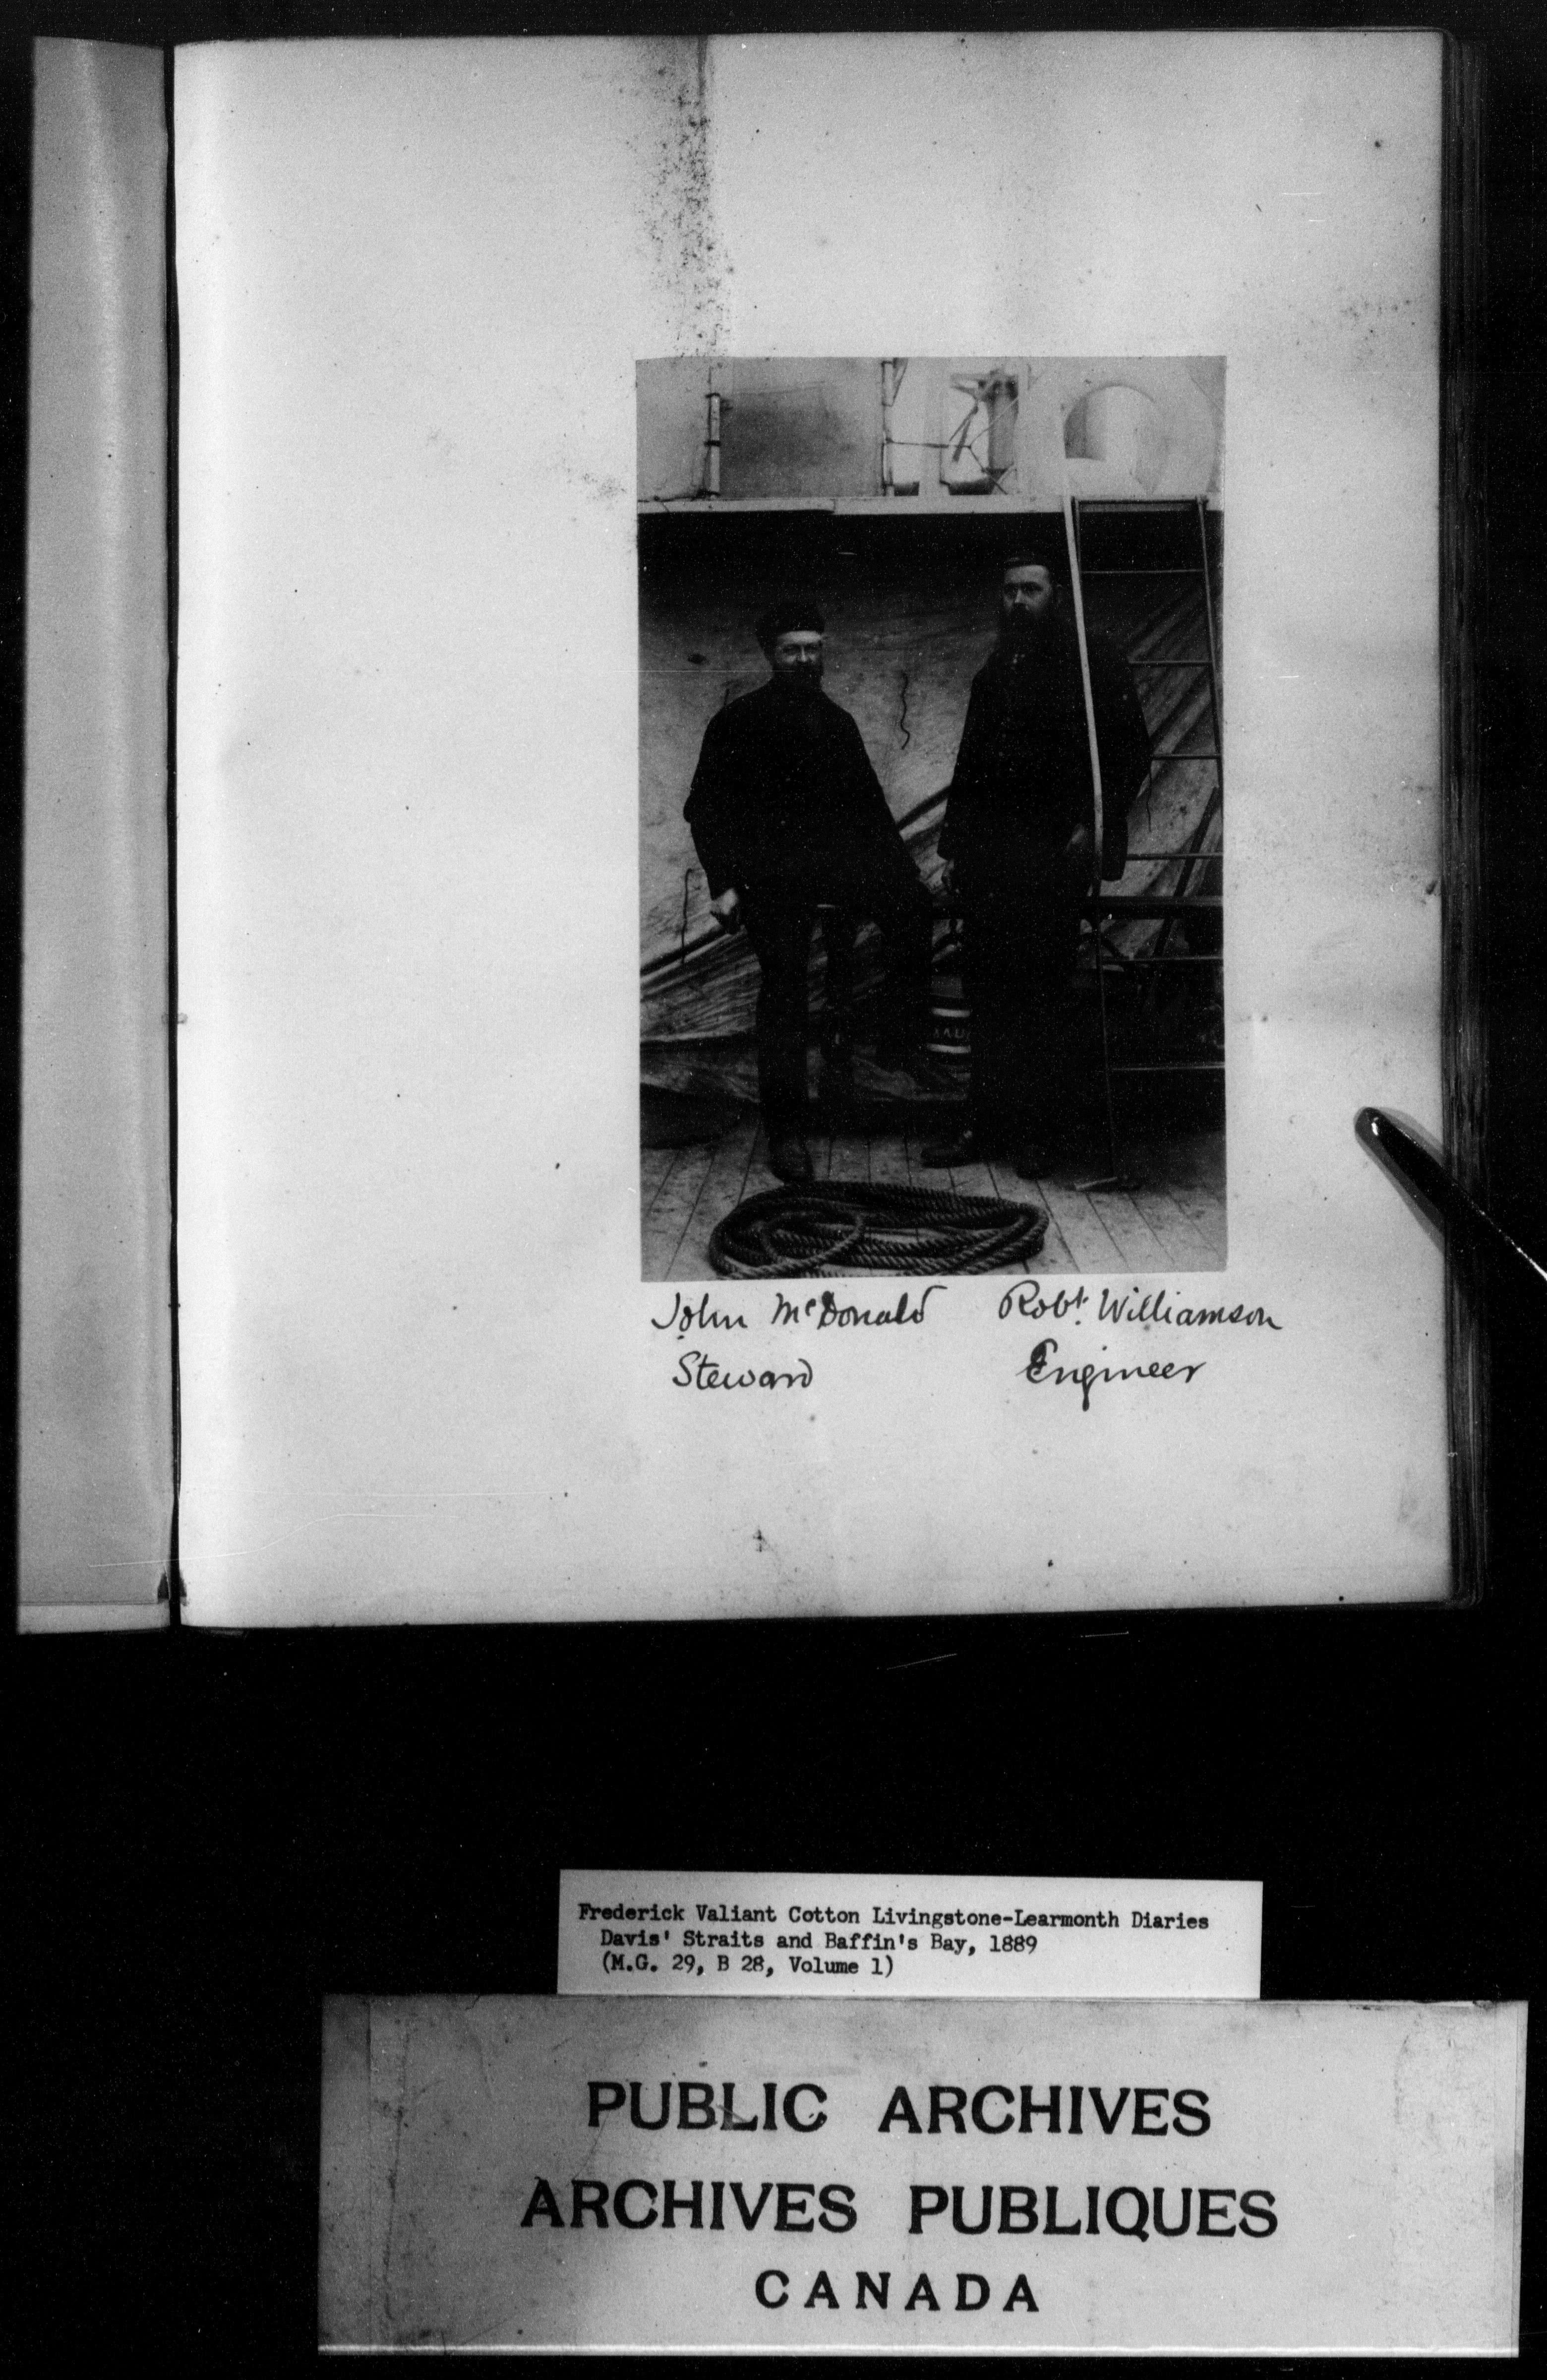 John McDonald Robt. Williamson
Steward Engineer
Frederick Valiant Cotton Livingstone-Learmonth Diaries
Davis' Straits and Baffin's Bay, 1889
(M.G. 29, B 28, Volume 1)
PUBLIC ARCHIVES
ARCHIVES PUBLIQUES
CANADA